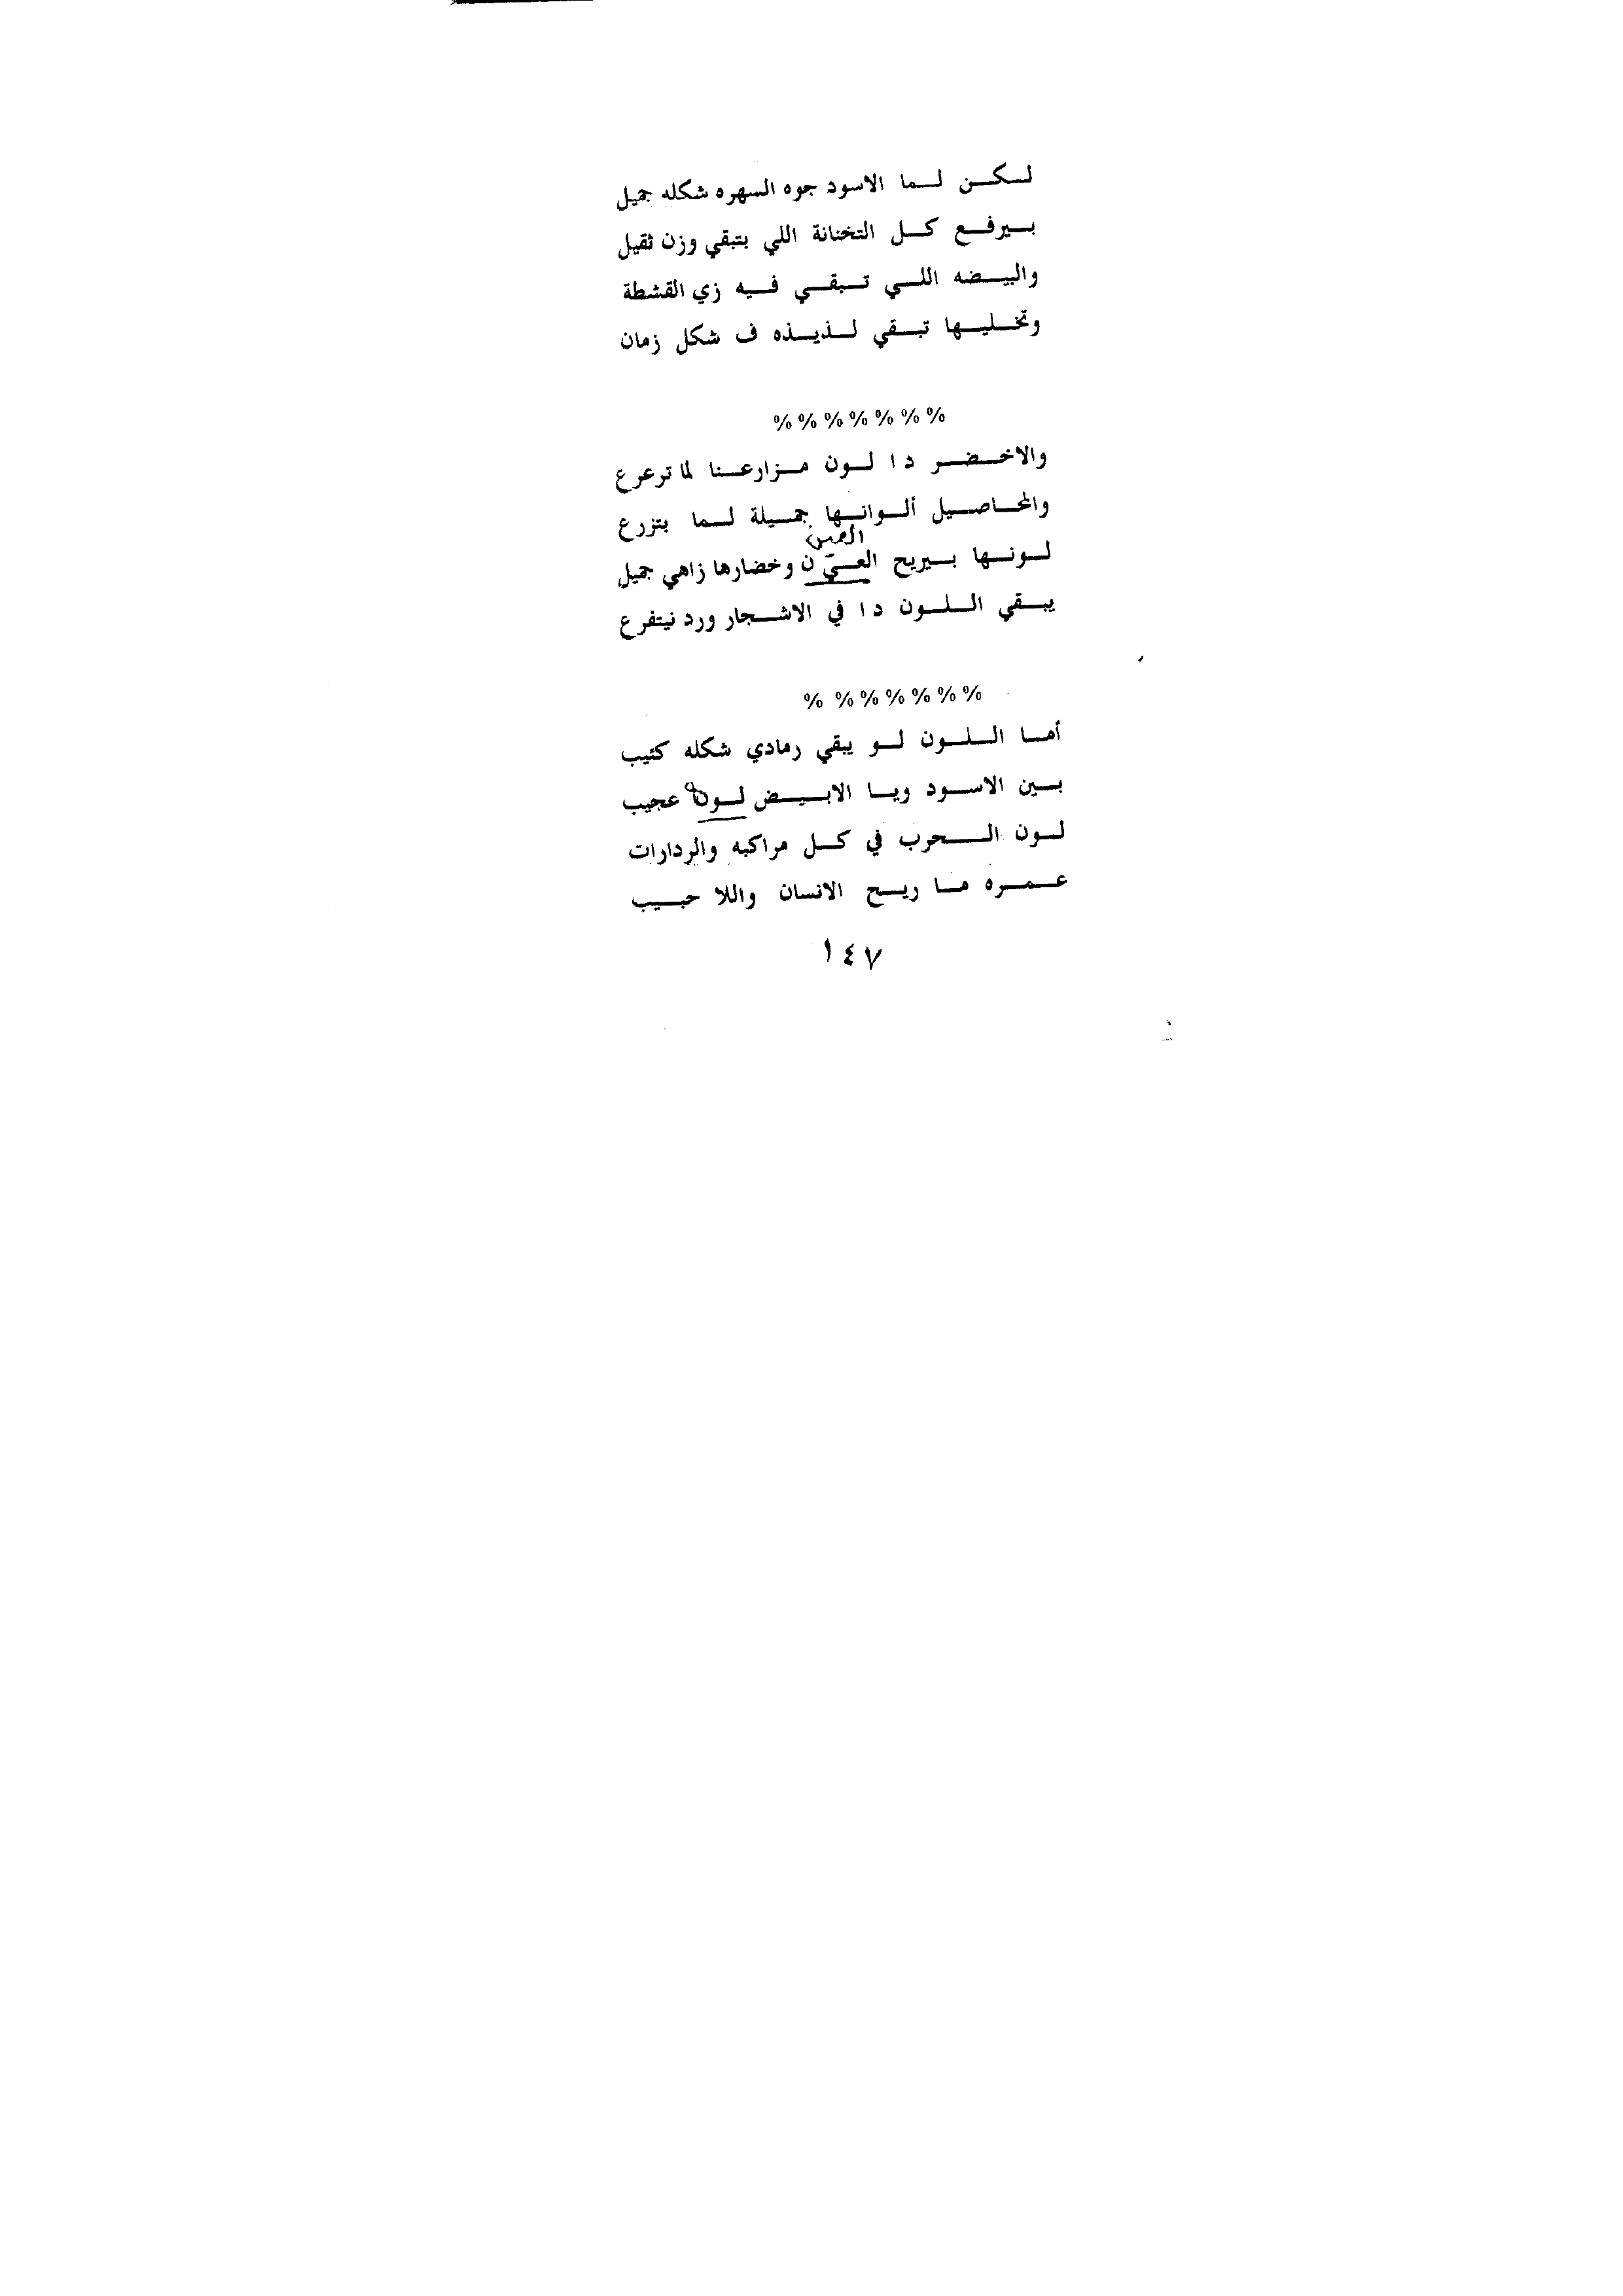 لكن لما الاسود جوه السهره شكله جميل
بيرفع كل التخنانة اللي بتبقي وزن ثقيل
والبيضه اللي تبقي فيه زي القشطة
وتخليها تبقي لذيذه ف شكل زمان
% % % % % % %
والاخضر دا لون مزارعنا لما ترعرع
والمحاصيل ألوانها جميلة لما بتزرع
العين
لونها بيريح العين وخضارها زاهي جميل
يبقي اللون دا في الاشجار ورد نيتفرع
% % % % % % %
أما اللون لو يبقي رمادي شكله كئيب
بين الاسود ويا الابيض لونه عجيب
لون الحرب في كل مراكبه والردارات
عمره ما ريح الانسان واللا حبيب
١٤٧